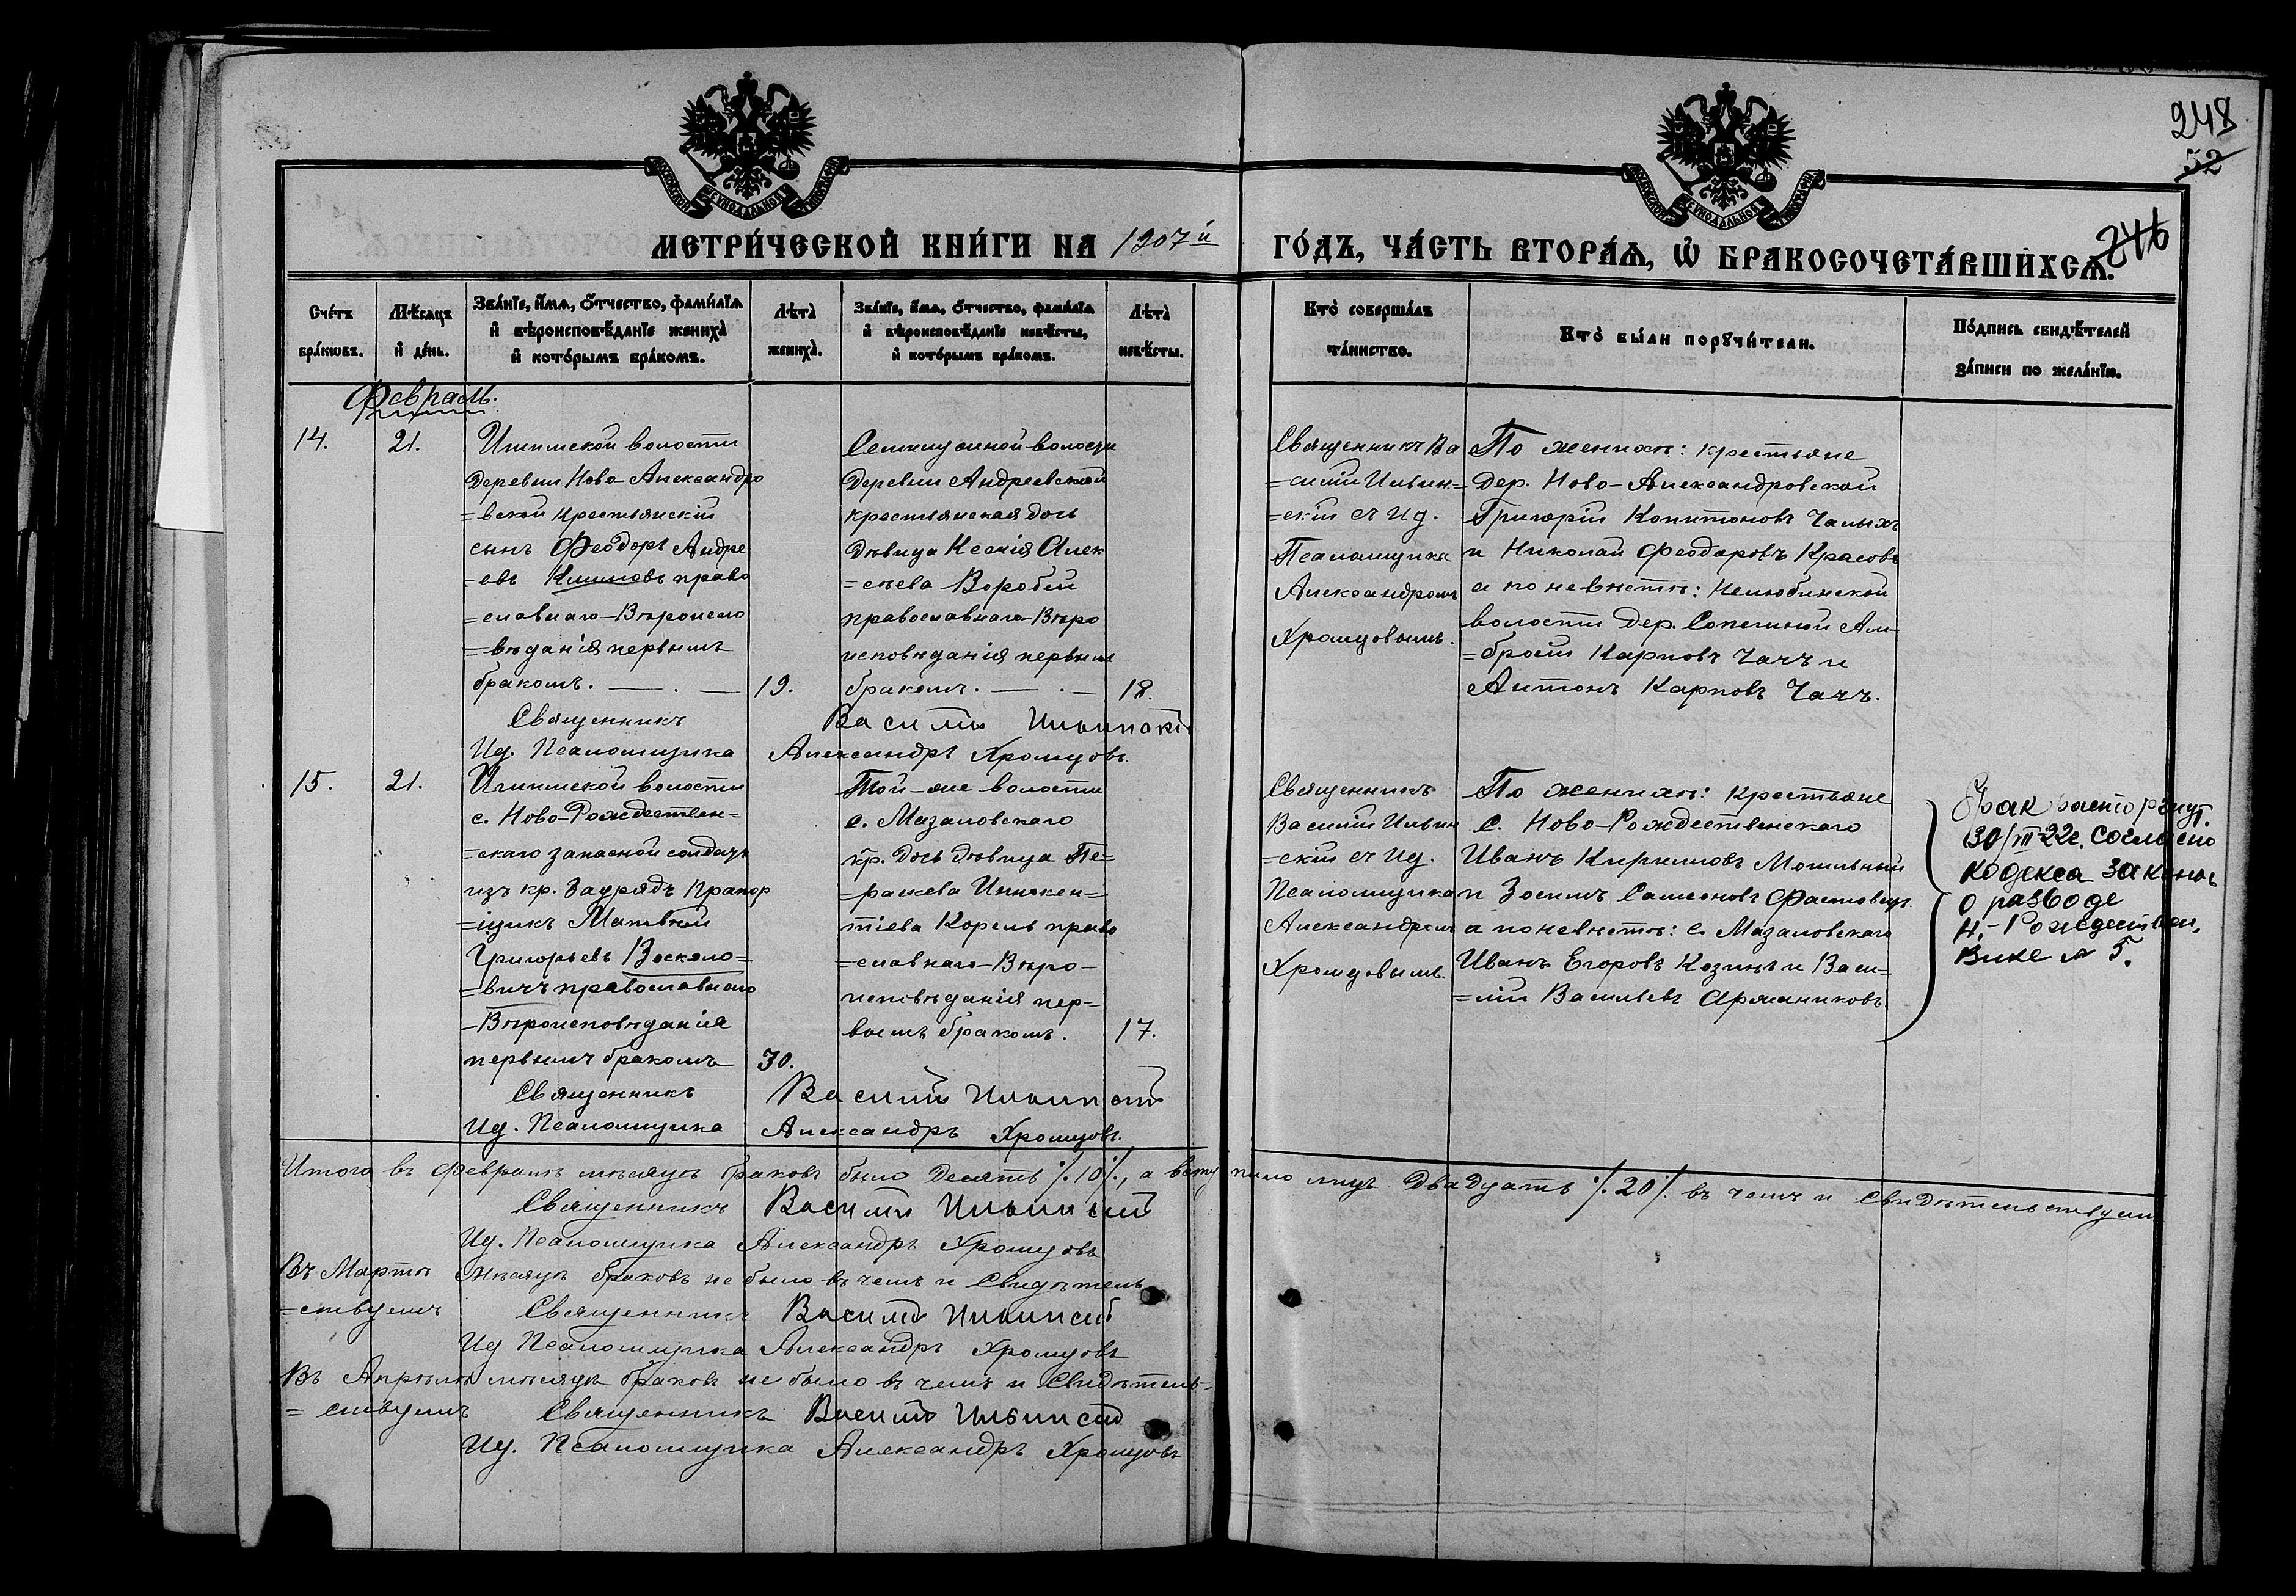 248
52
246
МОСКОВСКОЙ СѴНОДАЛЬНОЙ ТИПОГРАФІИ
МОСКОВСКОЙ СѴНОДАЛЬНОЙ ТИПОГРАФІИ
МЕТРИ́ЧЕСКОЙ КНИ́ГИ НА 1907й ГО́ДЪ, ЧА́СТЬ ВТОРА́Ѧ, Ѽ БРАКОСОЧЕТА́ВШИХСѦ.
Сче́тъ бра́кѡвъ.
Мѣ́сяцъ и҆ де́нь.
Зва́нїе, и҆́мѧ, ѻ҆́тчество, фами́лїѧ и҆ вѣроисповѣ́данїе жениха̀ и҆ кото́рымъ бра́комъ.
Лѣта̀ жениха̀.
Зва́нїе, и҆́мѧ, ѻ҆́тчество, фами́лїѧ и҆ вѣроисповѣ́данїе невѣ́сты, и҆ кото́рымъ бра́комъ.
Лѣта̀ невѣ́сты.
Кто̀ соверша́лъ та́инство.
Кто̀ бы́ли порꙋчи́тели.
По́дпись свидѣ́телей за́писи по жела́нїю.
Февраль.
14.
21.
Ишимской волости
деревни Ново-Александро
=вской крестьянскій
сынъ Феодоръ Андре
=евъ Климовъ право
=славнаго-Вѣроиспо
=вѣданія первымъ
бракомъ.
19.
Семилужной волости
деревни Андреевской
крестьянская дочь
дѣвица Ксенія Алек
=сѣева Воробей
православнаго Вѣро
исповѣданія первымъ
бракомъ.
18.
Священникъ Ва
=силій Ильин=
=скій съ Ид.
Псаломщика
Александромъ
Хромцовымъ.
По женихѣ: крестьяне
дер. Ново-Александровской
Григорій Капитоновъ Чалыхъ
и Николай Феодоровъ Красовъ
а по невѣстѣ: Нелюбинской
волости дер. Сопетиной Ам-
=бросій Карповъ Чачъ и
Антонъ Карповъ Чачъ.
Священникъ Василій Ильинскій
Ид. Псаломщика Александръ Хромцовъ.
15.
21.
Ишимской волости
с. Ново-Рождествен=
=скаго запасной солдатъ
изъ кр. Заурядъ Прапор
=щикъ Матвѣй
Григорьевъ Восколо=
=вичъ православнаго
-Вѣроисповѣданія
первымъ бракомъ
30.
Той-же волости
с. Мазаловскаго
кр. дочь дѣвица Пе=
=раскева Иннокен=
тіева Корель право
=славнаго-Вѣро-
исповѣданія пер-
вымъ бракомъ.
17.
Священникъ
Василій Ильин
=скій съ Ид.
Псаломщика
Александромъ
Хромцовымъ.
По женихѣ: крестьяне
с. Ново-Рождественскаго
Иванъ Кириловъ Могильный
и Зосимъ Самсоновъ Фастовецъ.
а по невѣстѣ: с. Мазаловскаго
Иванъ Егоровъ Козинъ и Васи=
=лій Васильевъ Аржаниковъ.
Брак расторгнут.
30/III-22г. согласно
кодекса законов
о разводе
Н.-Рождествен.
Вике № 5.
Священникъ Василій Ильинскій
Ид. Псаломщика Александръ Хромцовъ.
Итого въ февралѣ мѣсяцѣ браковъ было десять ./.10./., а вступило лицъ двадцать ./.20./. въ чемъ и свидѣтельствуемъ
Священникъ Василій Ильинскій
Ид. Псаломщика Александръ Хромцовъ
Въ Мартѣ мѣсяцѣ браковъ не было въ чемъ и Свидѣтель
=ствуемъ Священникъ Василій Ильинскій
Ид Псаломщика Александръ Хромцовъ
Въ Апрѣлѣ мѣсяцѣ браковъ не было въ чемъ и Свидѣтель-
=ствуемъ Священникъ Василій Ильинскій
Ид. Псаломщика Александръ Хромцовъ